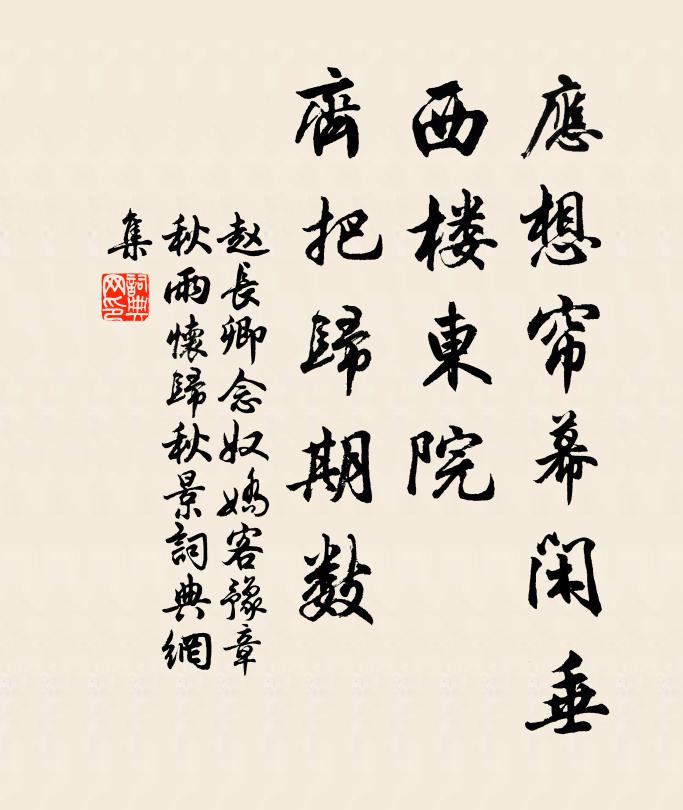 應想帘幕闲垂
西楼東院
齊把歸期数
赵長卿念奴嬌客豫章
秋雨懷歸秋景詞典網
集
詞典
网印